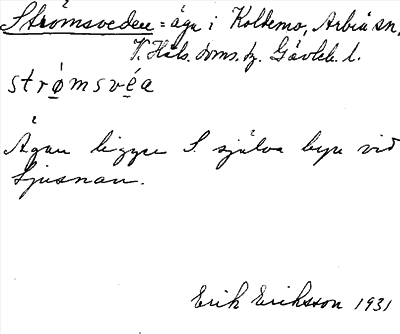 Strömsveden = äga i Koldemo, Arbrå sn,
V. Häls. doms. hg. Gävleb. l.
strø̱msvé̱a
Ägan ligger S. själva byn vid
Ljusnan.
Erik Eriksson 1931